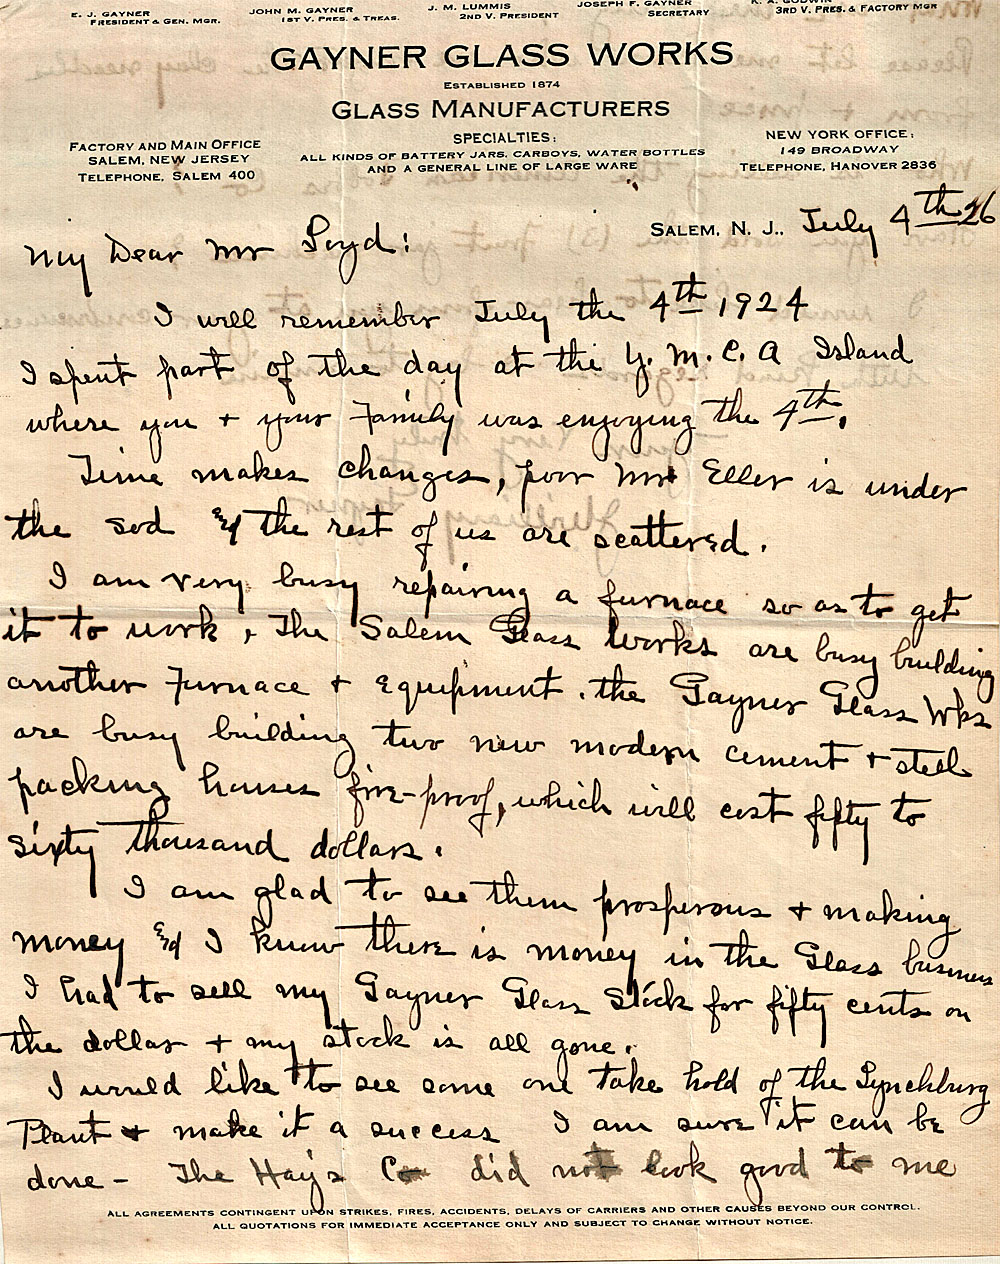 E. J. GAYNER JOHN M. GAYNER J. M. LUMMIS JOSEPH F. GAYNER K. A. GODWIN
PRESIDENT & GEN. MGR. 1ST V. PRES. & TREAS. 2ND V. PRESIDENT SECRETARY 3RD V. PRES. & FACTORY MGR
GAYNER GLASS WORKS
ESTABLISHED 1874
GLASS MANUFACTURERS
FACTORY AND MAIN OFFICE
SALEM, NEW JERSEY
TELEPHONE, SALEM 400
SPECIALTIES:
ALL KINDS OF BATTERY JARS, CARBOYS, WATER BOTTLES
AND A GENERAL LINE OF LARGE WARE
NEW YORK OFFICE:
149 BROADWAY
TELEPHONE, HANOVER 2836
SALEM, N. J., July 4th 26
My Dear Mr Loyd:
I will remember July the 4th 1924
I spent part of the day at the Y. M. C. A Island
where you + your Family was enjoying the 4th.
Time makes changes, poor Mr Eller is under
the sod & the rest of us are scattered.
I am very busy repairing a furnace so as to get
it to work, The Salem Glass Works are busy building
another Furnace + Equipment. the Gayner Glass Wks
are busy building two new modern cement + steel
packing houses fire-proof, which will cost fifty to
sixty thousand dollars.
I am glad to see them prosperous + making
money & I know there is money in the Glass business
I had to sell my Gayner Glass Stock for fifty cents on
the dollar + my stock is all gone.
I would like to see some one take hold of the Lynchburg
Plant + make it a success I am sure it can be
done - The Hay's Co did not look good to me
ALL AGREEMENTS CONTINGENT UPON STRIKES, FIRES, ACCIDENTS, DELAYS OF CARRIERS AND OTHER CAUSES BEYOND OUR CONTROL.
ALL QUOTATIONS FOR IMMEDIATE ACCEPTANCE ONLY AND SUBJECT TO CHANGE WITHOUT NOTICE.